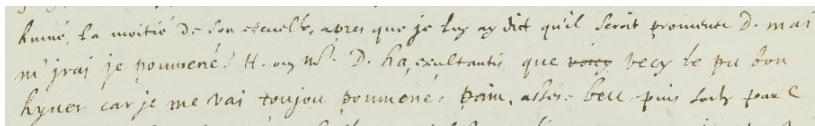 humé, la moitié de son escuelle, apres que je luy ay dict qu'il seroit promener D. mai
m'jrai je poumené? H. ouy Mr. D. ha, exultantis que voicy vecy le pu bon
hyver car je me vai toujou poumené. pain, assés. beu puis sorty pour